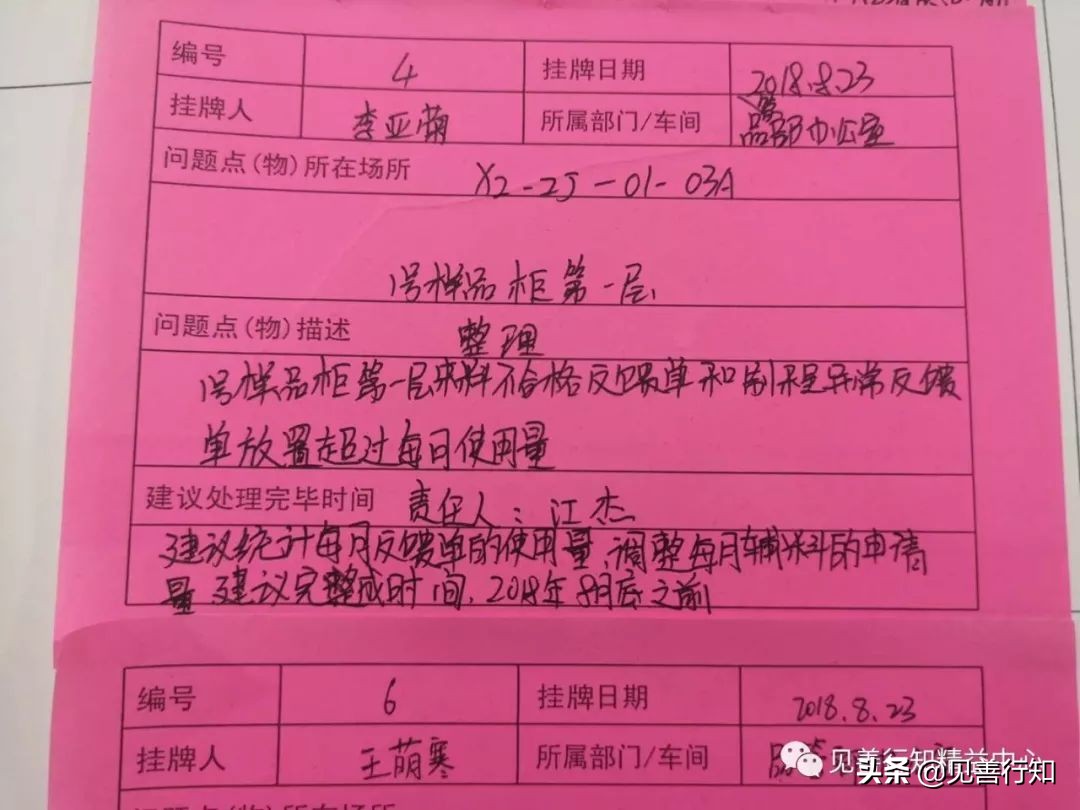 编号 4 挂牌日期 2018.8.23
挂牌人 李亚萌 所属部门/车间 品管部办公室
问题点(物)所在场所 Y2-2J-01-03A
1号样品柜第一层
问题点(物)描述 整理
1号样品柜第一层来料不合格反馈单和制程异常反馈
单放置超过每日使用量
建议处理完毕时间 责任人:江杰
建议统计每月反馈单的使用量,调整每月辅料的申请
量 建议完整成时间,2018年8月底之前
编号 6 挂牌日期 2018.8.23
挂牌人 王萌寒 所属部门/车间 品管
见善行知精益中心
头条 @见善行知
问题点(物)所在场所